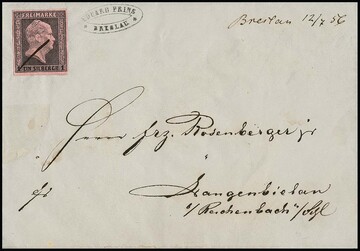 FREIMARKE
1 EIN SILBERGR. 1
BRESLAU
Breslau 12/7 56
Herrn Frz. Rosenberger jr
Langenbielau
a/Reichenbach i/Schl